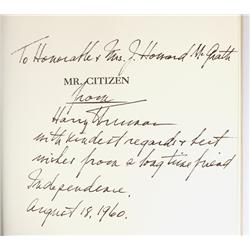 To Honorable & Mrs. J. Howard McGrath
MR. CITIZEN
from
Harry Truman
with kindest regards & best
wishes from a long time friend
Independence.
August 18, 1960.